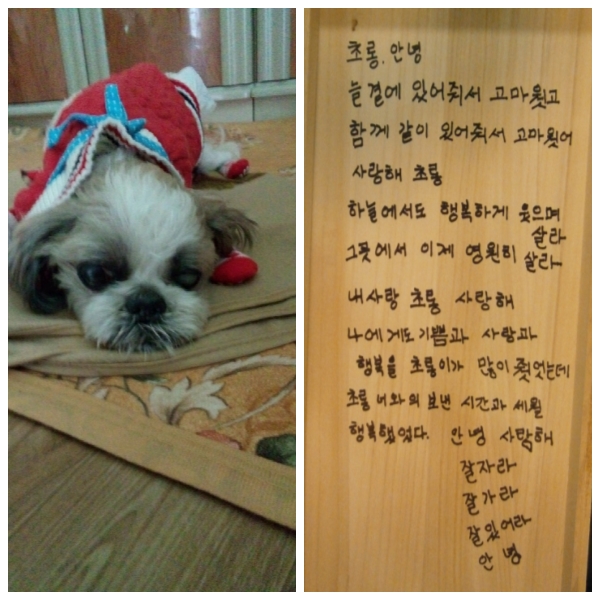 초롱. 안녕
늘 곁에 있어줘서 고마웠고
함께 같이 있어줘서 고마웠어
사랑해 초롱
하늘에서도 행복하게 웃으며 살라
그곳에서 이제 영원히 살라
내사랑 초롱 사랑해
나에게도 기쁨과 사랑과
행복을 초롱이가 많이 줬었는데
초롱 너와의 보낸 시간과 세월
행복했었다. 안녕 사랑해
잘자라
잘가라
잘있어라
안녕